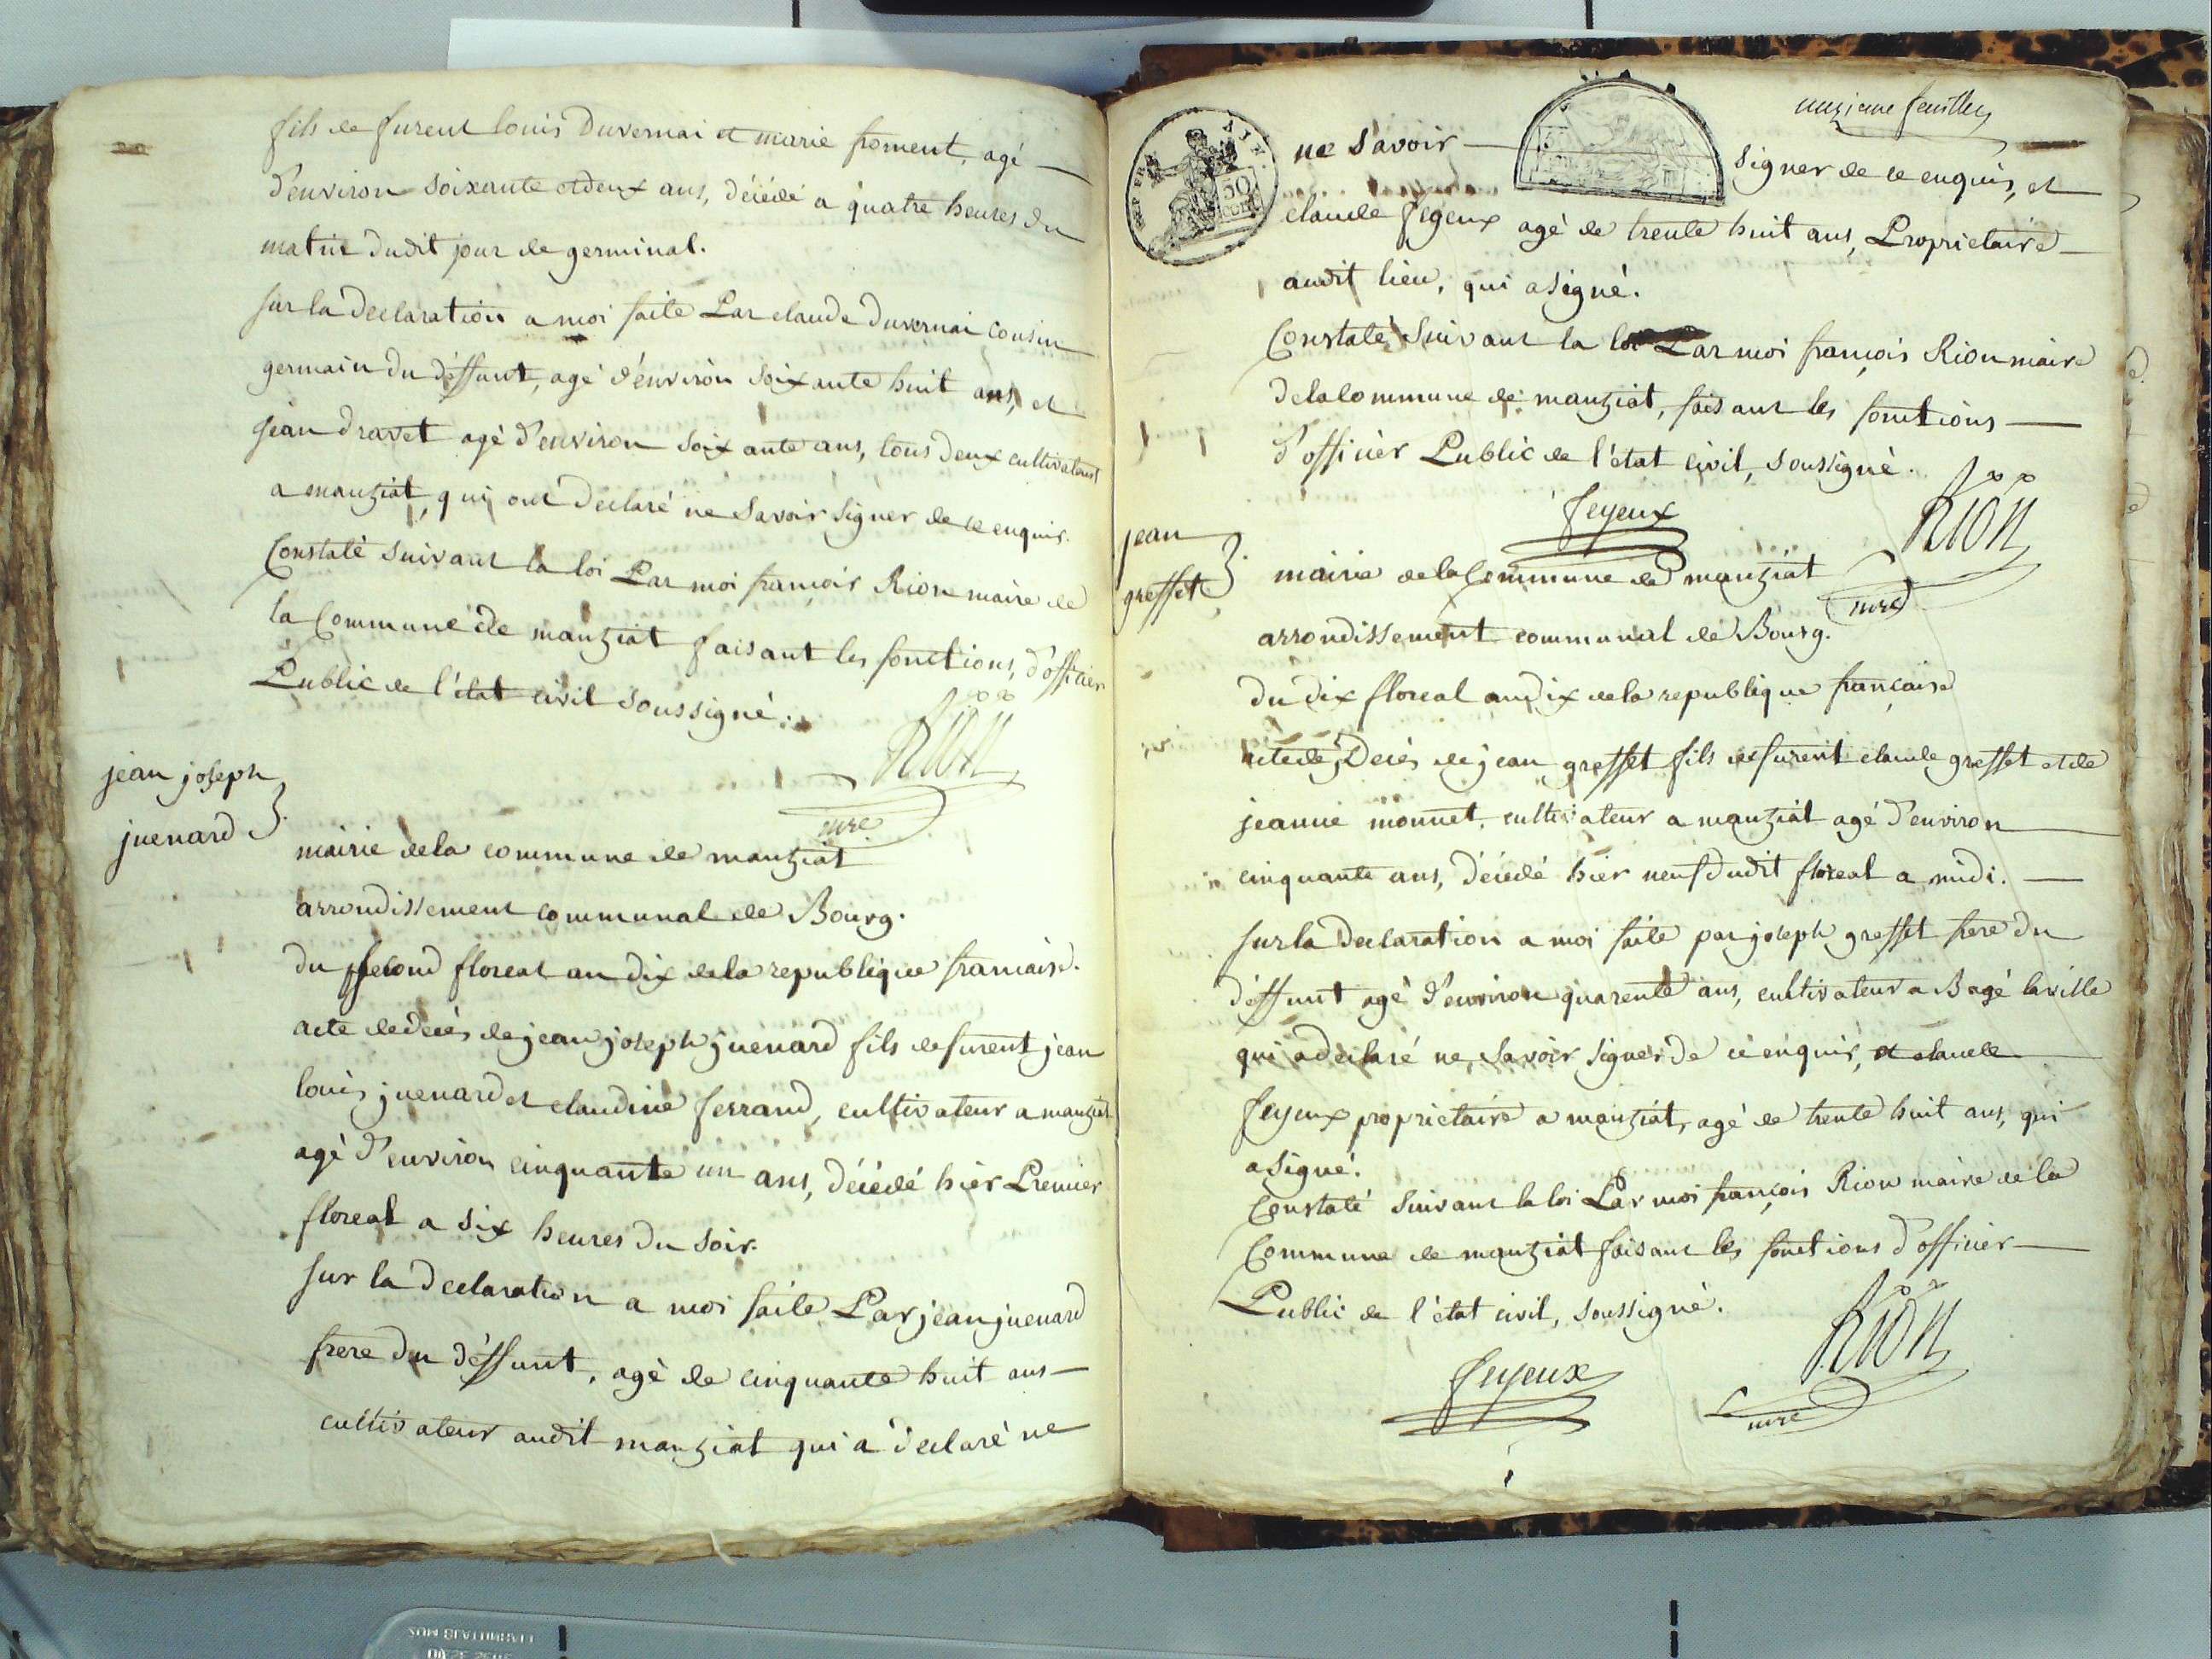 fils de furent louis Duvernai et marie froment, agé
d'environ soixante et deux ans, décédé a quatre heures du
matin dudit jour de germinal.
sur la declaration a moi faite Par claude duvernai cousin
germain du déffunt, agé d'environ soixante huit ans, et
jean dravet agé d'environ soixante ans, tous deux cultivateurs
a manziat, qui ont declaré ne savoir signer de ce enquis.
Constaté suivant la loi Par moi françois Rion maire de
la Commune de manziat faisant les fonctions, d'officier
Public de l'état civil soussigné.
Rion
mre
jean joseph
juenard
mairie de la commune de manziat
arrondissement communal de Bourg.
du second floreal an dix de la republique francaise.
acte de decès de jean joseph juenard fils de furent jean
louis juenard et claudine ferrand, cultivateur a manziat
agé d'environ cinquante un ans, décédé hier Premier
floreal a six heures du soir.
sur la declaration a moi faite Par jean juenard
frere du déffunt, agé de cinquante huit ans
cultivateur audit manziat qui a déclaré ne
onzieme feuillet
REP FRA
AIN.
50
CENT
ne savoir signer de ce enquis, et
claude feyeux agé de trente huit ans, Proprietaire
audit lieu, qui a signé.
Constaté suivant la loi Par moi françois Rion maire
de la Commune de manziat, faisant les fonctions
d'officier Public de l'état civil, soussigné.
feyeux
Rion
mre
jean
greffet
mairie de la Commune de manziat
arrondissement communal de Bourg.
du dix floreal an dix de la republique française
acte de Decès de jean greffet fils de furent claude greffet et de
jeanne monnet, cultivateur a manziat agé d'environ
cinquante ans, décédé hier neuf dudit floreal a midi.
sur la declaration a moi faite par joseph greffet frere du
déffunt agé d'environ quarente ans, cultivateur a Bagé la ville
qui a declaré ne savoir signer de ce enquis, et claude
feyeux proprietaire a manziat, agé de trente huit ans, qui
a signé.
Constaté suivant la loi Par moi françois Rion maire de la
Commune de manziat faisant les fonctions d'officier
Public de l'état civil, soussigné.
feyeux
Rion
mre